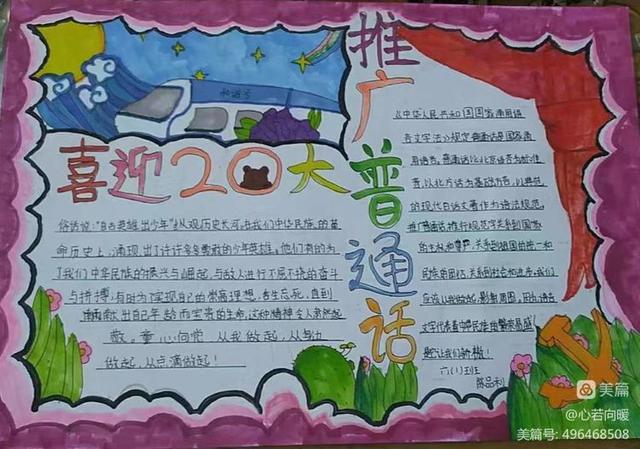 和谐号
喜迎20大
俗话说：“自古英雄出少年”纵观历史长河，在我们中华民族的革
命历史上，涌现出了许许多多勇敢的少年英雄。他们有的为
了我们中华民族的振兴与崛起，与敌人进行不屈不挠的奋斗
与拼搏，有时为了实现自己的崇高理想，舍生忘死，直到
献出自己年龄而宝贵的生命，这种精神令人肃然起
敬。童心向党 从我做起，从与动
做起，从点滴做起！
推广普通话
《中华人民共和国国家通用语
言文字法》规定普通话是国家通
用语言，普通话以北京语音为标准
音，以北方话为基础方言，以典范
的现代白话文著作为语法规范。
推广普通话，推行规范字关系到国家
的主权和尊严，关系到祖国的统一和
民族的团结，关系到社会和进步，我们
应该从我做起，影响周围，因为语言
文字代表着中华民族的繁荣昌盛！
让我们
六(1)班
陈品利
美篇
@心若向暖
美篇号: 496468508